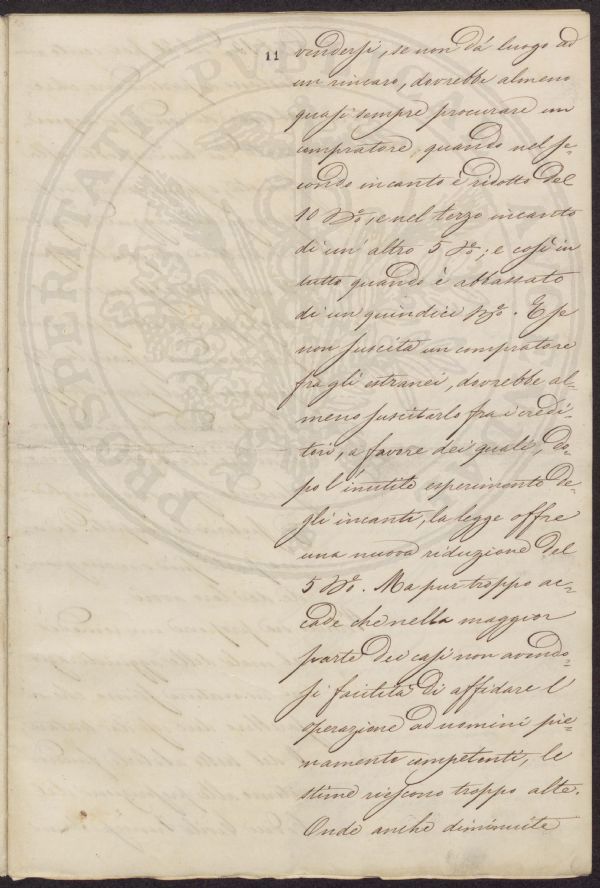 11
vendersi, se non dá luogo ad
un rincaro, dovrebbe almeno
quasi sempre procurare un
compratore, quando nel se-
condo incanto è ridotto del
10 %, e nel terzo incanto
di un altro 5 %; e così in
tutto quando è abbassato
di un quindici %. E se
non suscita un compratore
fra gli estranei, dovrebbe al-
meno suscitarlo fra i credi-
tori, a favore dei quali, do-
po l'inutile esperimento de-
gli incanti, la legge offre
una nuova riduzione del
5 %. Ma pur troppo ac-
cade che nella maggior
parte dei casi non avendo-
si facilità di affidare l'
operazione ad uomini pie-
namente competenti, le
stime riescono troppo alte.
Onde anche diminuite
PROSPERITATI PVBLICAE